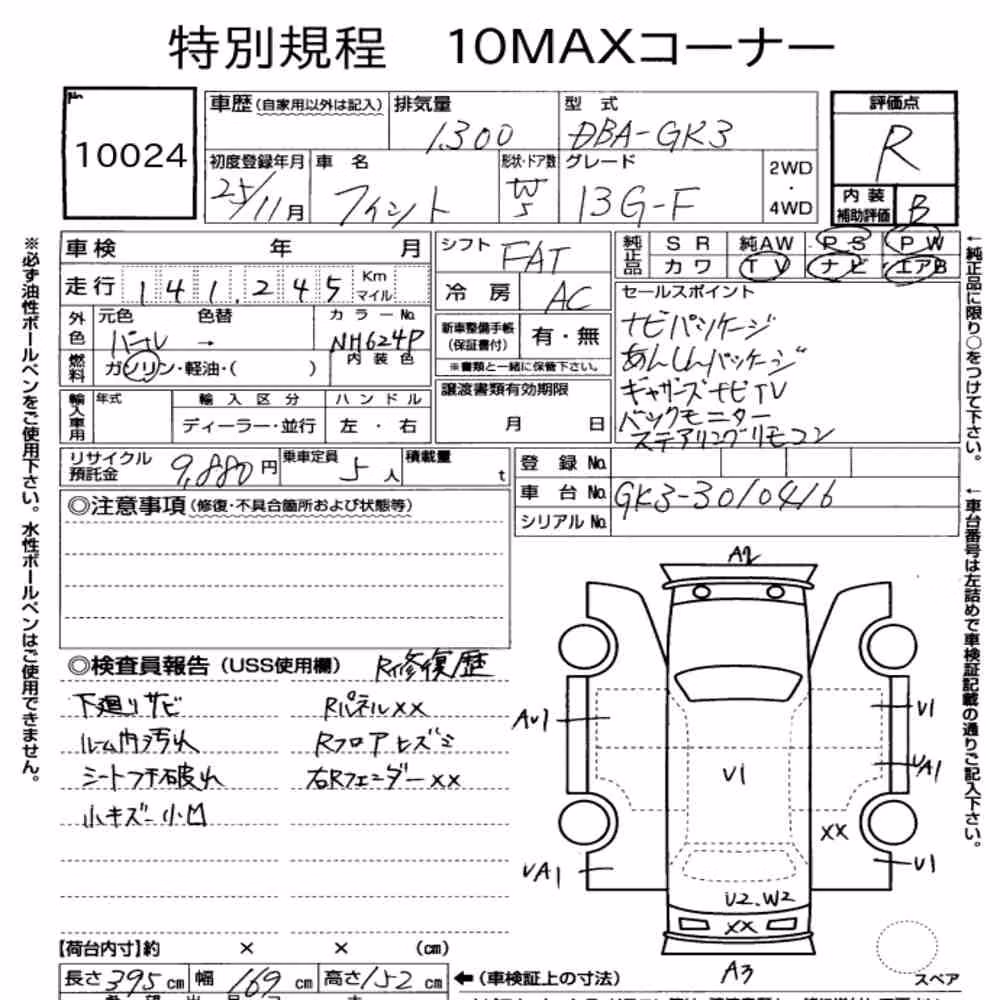 特別規程 10MAXコーナー
10024
車歴 (自家用以外は記入)
排気量
1300
型 式
DBA-GK3
評価点
R
初度登録年月
25/11月
車 名
フィット
形状・ドア数
W
5
グレード
13G-F
2WD
・
4WD
内 装
補助評価
B
車検 年 月
走行 141,245 Km
マイル
外色
元色 色替 カラーNo.
パール → NH624P
内装色
燃料
ガソリン・軽油・( )
輸入車用
年式
輸 入 区 分
ハ ン ド ル
ディーラー・並行
左 ・ 右
リサイクル
預託金
9,880円
乗車定員
5人
積載量
t
シフト FAT
冷 房 AC
新車整備手帳
(保証書付)
有・無
※書類と一緒に保管下さい。
譲渡書類有効期限
月 日
純正品
S R 純AW P S P W
カ ワ T V ナ ビ エアB
セールスポイント
ナビパッケージ
あんしんパッケージ
ギャザーズナビTV
バックモニター
ステアリングリモコン
登 録 No.
車 台 No. GK3-3010416
シリアル No.
◎注意事項 (修復・不具合箇所および状態等)
◎検査員報告 (USS使用欄) R修復歴
下廻りサビ Rパネル××
ルーム内汚れ Rフロアヒズミ
シートフチ破れ 右Rフェンダー××
小キズ 小凹
A2
AU1
U1
UA1
U1
XX
UA1
U1
U2.W2
XX
A3
スペア
【荷台内寸】約 × × (㎝)
長さ395㎝ 幅169㎝ 高さ152㎝
← (車検証上の寸法)
※必ず油性ボールペンをご使用下さい。水性ボールペンはご使用できません。
←純正品に限り○をつけて下さい。
←車台番号は左詰めで車検証記載の通りご記入下さい。